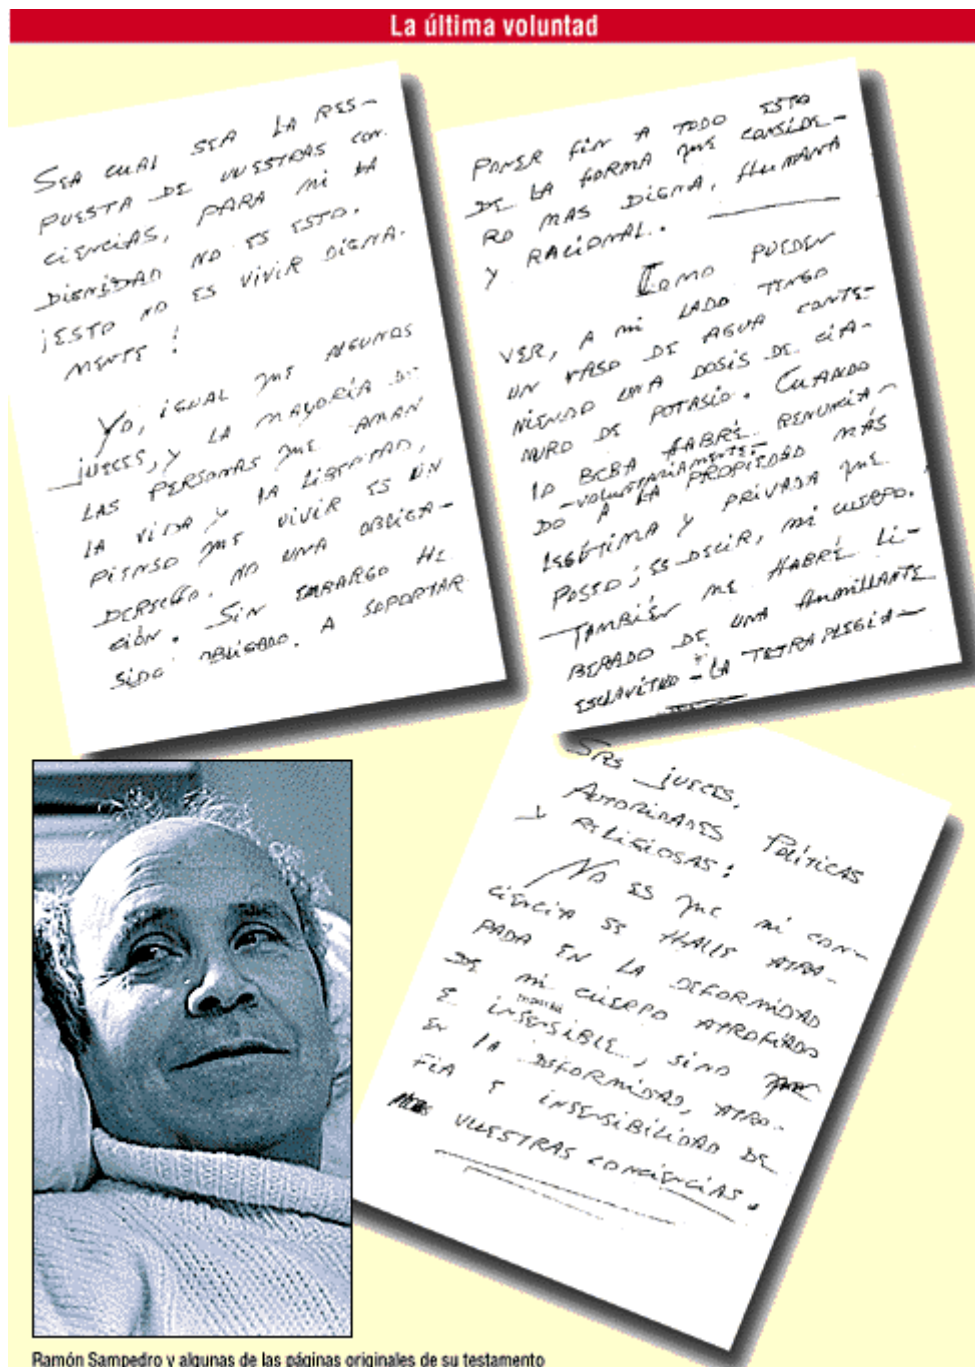 La última voluntad
SEA CUAL SEA LA RES-
PUESTA DE VUESTRAS CON-
CIENCIAS, PARA MI LA
DIGNIDAD NO ES ESTO.
¡ESTO NO ES VIVIR DIGNA-
MENTE!
YO, IGUAL QUE ALGUNOS
JUECES, Y LA MAYORÍA DE
LAS PERSONAS QUE AMAN
LA VIDA Y LA LIBERTAD,
PIENSO QUE VIVIR ES UN
DERECHO, NO UNA OBLIGA-
CIÓN. SIN EMBARGO HE
SIDO OBLIGADO A SOPORTAR
PONER FIN A TODO ESTO
DE LA FORMA QUE CONSIDE-
RO MAS DIGNA, HUMANA
Y RACIONAL.
COMO PUEDEN
VER, A MI LADO TENGO
UN VASO DE AGUA CONTE-
NIENDO UNA DOSIS DE CIA-
NURO DE POTASIO. CUANDO
LO BEBA HABRÉ RENUNCIA-
-VOLUNTARIAMENTE-
DO A LA PROPIEDAD MÁS
LEGÍTIMA Y PRIVADA QUE
POSEO; ES DECIR, MI CUERPO.
TAMBIÉN ME HABRÉ LI-
BERADO DE UNA HUMILLANTE
ESCLAVITUD - LA TETRAPLEGIA -
SRS JUECES,
AUTORIDADES POLÍTICAS
Y RELIGIOSAS:
NO ES QUE MI CON-
CIENCIA SE HALLE ATRA-
PADA EN LA DEFORMIDAD
DE MI CUERPO ATROFIADO
E INSENSIBLE, SINO
EN LA DEFORMIDAD, ATRO-
FIA E INSENSIBILIDAD DE
VUESTRAS CONCIENCIAS.
Ramón Sampedro y algunas de las páginas originales de su testamento